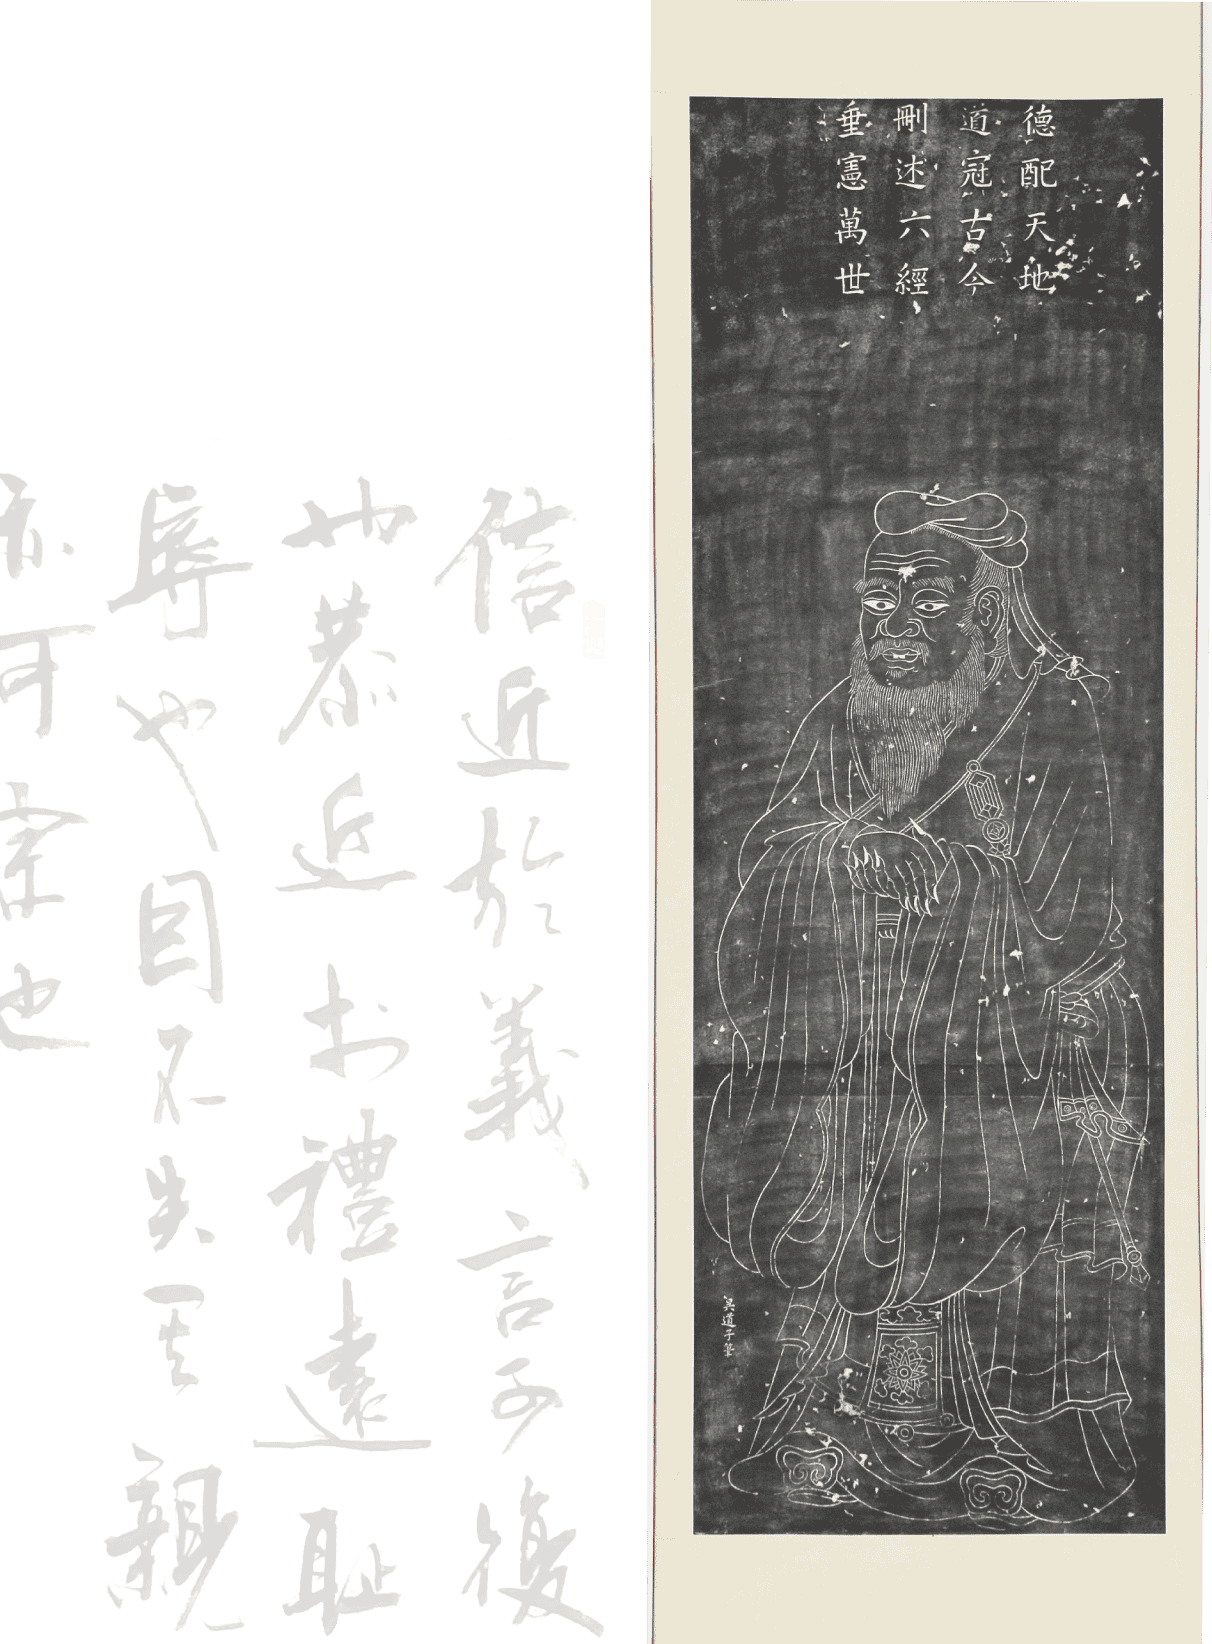 德配天地
道冠古今
刪述六經
垂憲萬世
吳道子筆
信近於義言可復
也恭近於禮遠耻
辱也因不失其親
亦可宗也